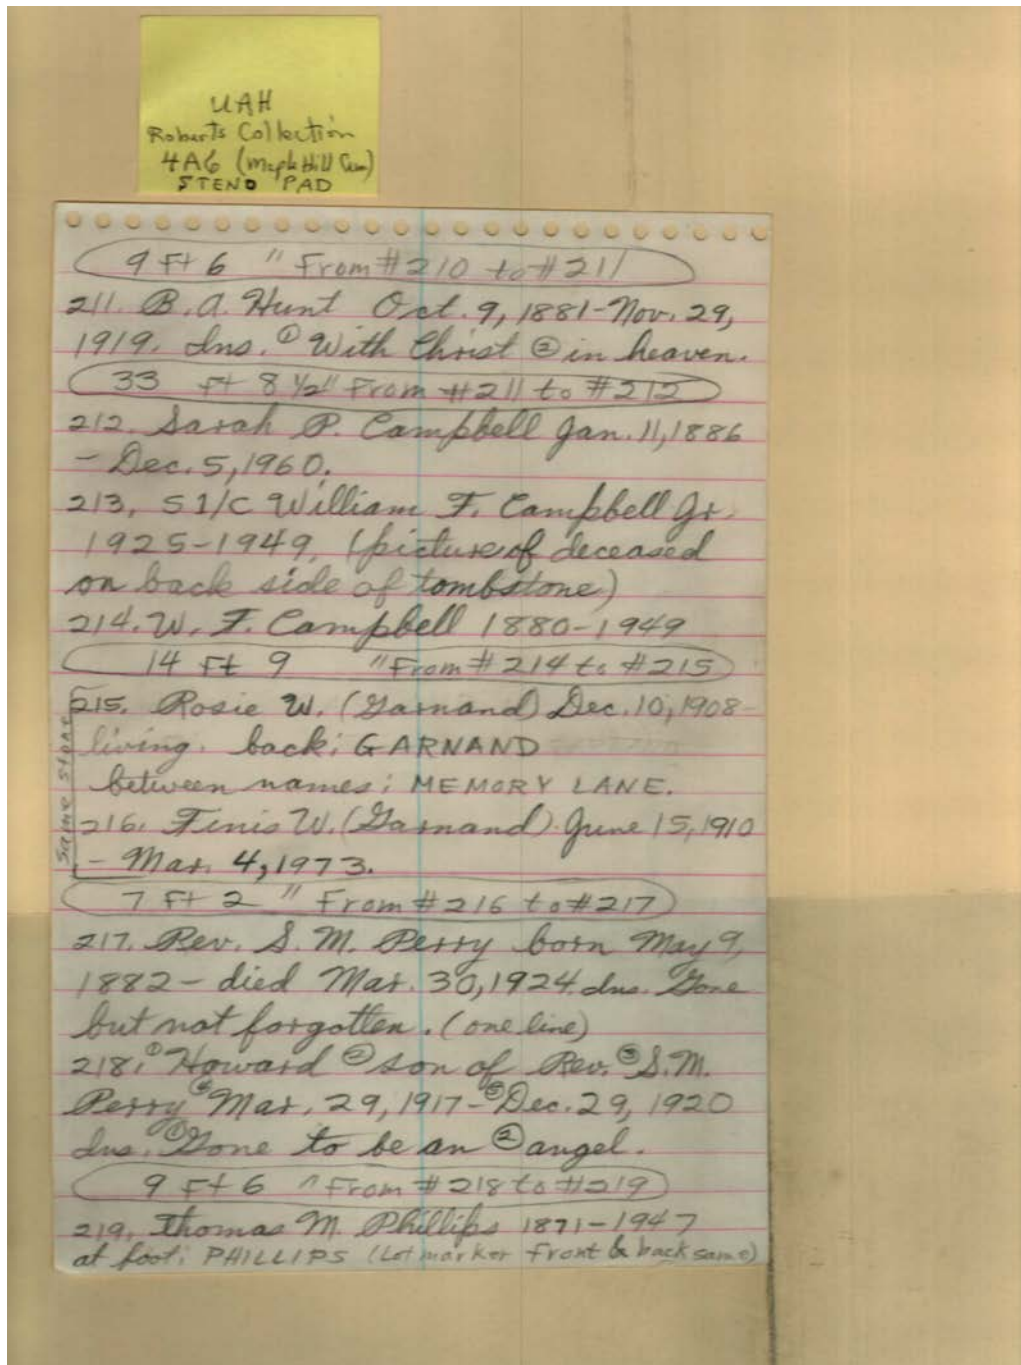 UAH
Roberts Collection
4A6 (Maple Hill Cem)
STENO PAD
9 Ft 6 " From #210 to #211
211. B. A. Hunt Oct. 9, 1881-Nov. 29,
1919. Ins. ① With Christ ② in heaven.
33 Ft 8 1/2" From #211 to #212
212. Sarah P. Campbell Jan. 11, 1886
- Dec. 5, 1960.
213. S 1/C William F. Campbell Jr.
1925-1949. (picture of deceased
on back side of tombstone)
214. W. F. Campbell 1880-1949
14 Ft 9 " From #214 to #215
same stone
215. Rosie W. (Garnand) Dec. 10, 1908-
living. back: GARNAND
between names: MEMORY LANE.
216. Finis W. (Garnand) June 15, 1910
- Mar. 4, 1973.
7 Ft 2 " From #216 to #217
217. Rev. S. M. Perry born May 9,
1882 - died Mar. 30, 1924. Ins. Gone
but not forgotten. (one line)
218. ① Howard ② son of Rev. ③ S. M.
Perry ④ Mar. 29, 1917- ⑤ Dec. 29, 1920
Ins. ① Gone to be an ② angel.
9 Ft 6 " From #218 to #219
219. Thomas M. Phillips 1871-1947
at foot: PHILLIPS (Lot marker Front & back same)